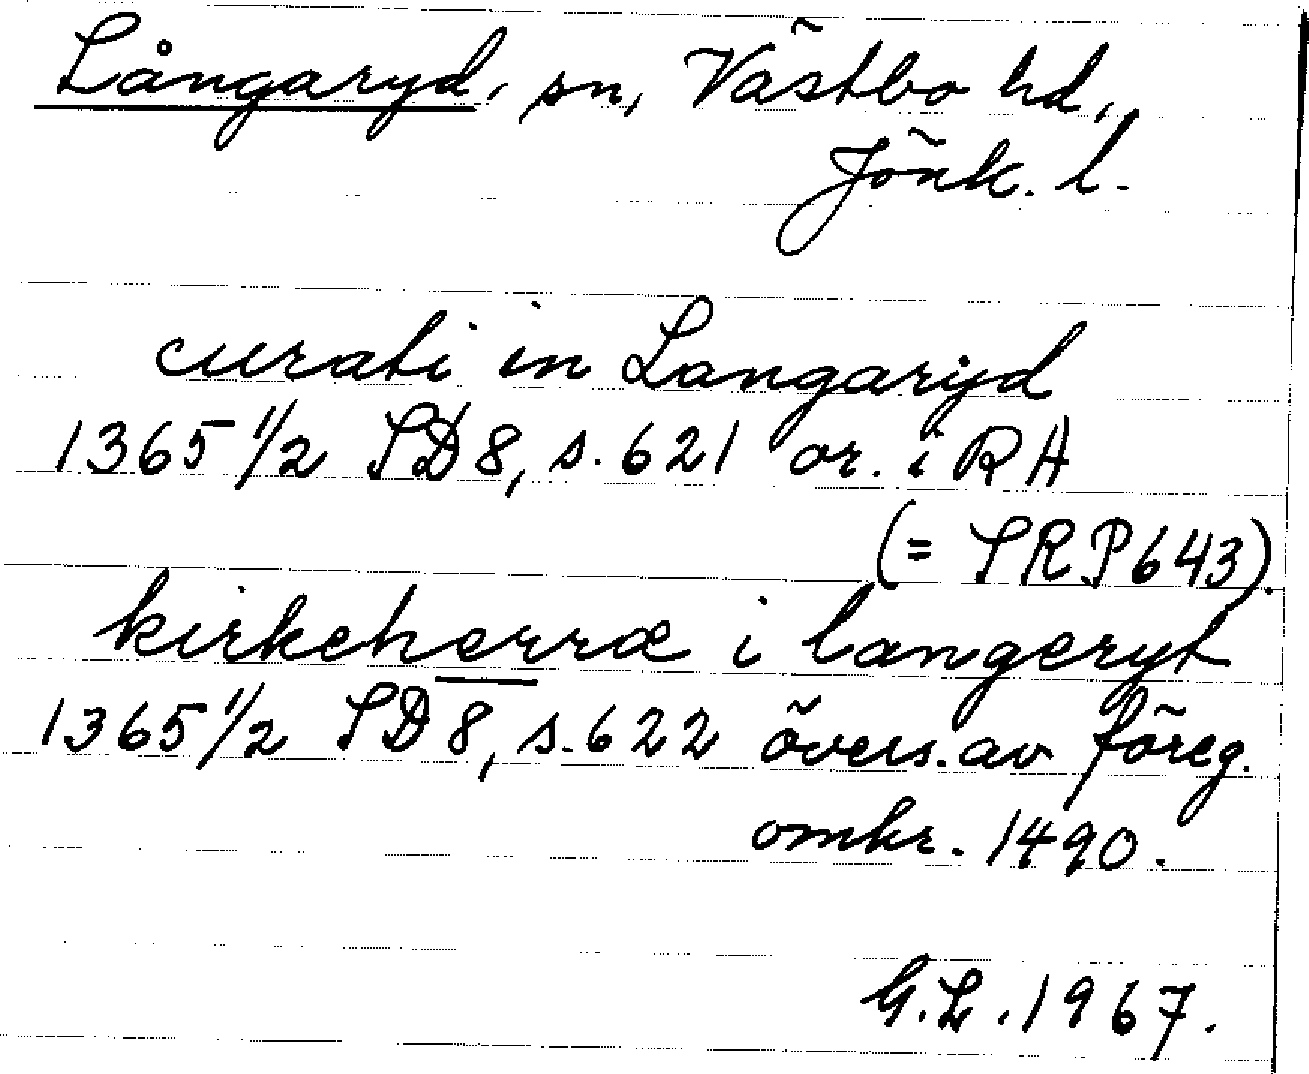 Långaryd, sn, Västbo hd,
Jönk. l.
curati in Langarÿd
1365 1/2 SD 8, s. 621 or. i RA
(= SRP 643).
kirkeherræ i langeryt
1365 1/2 SD 8, s. 622 övers. av föreg.
omkr. 1490.
G.L. 1967.